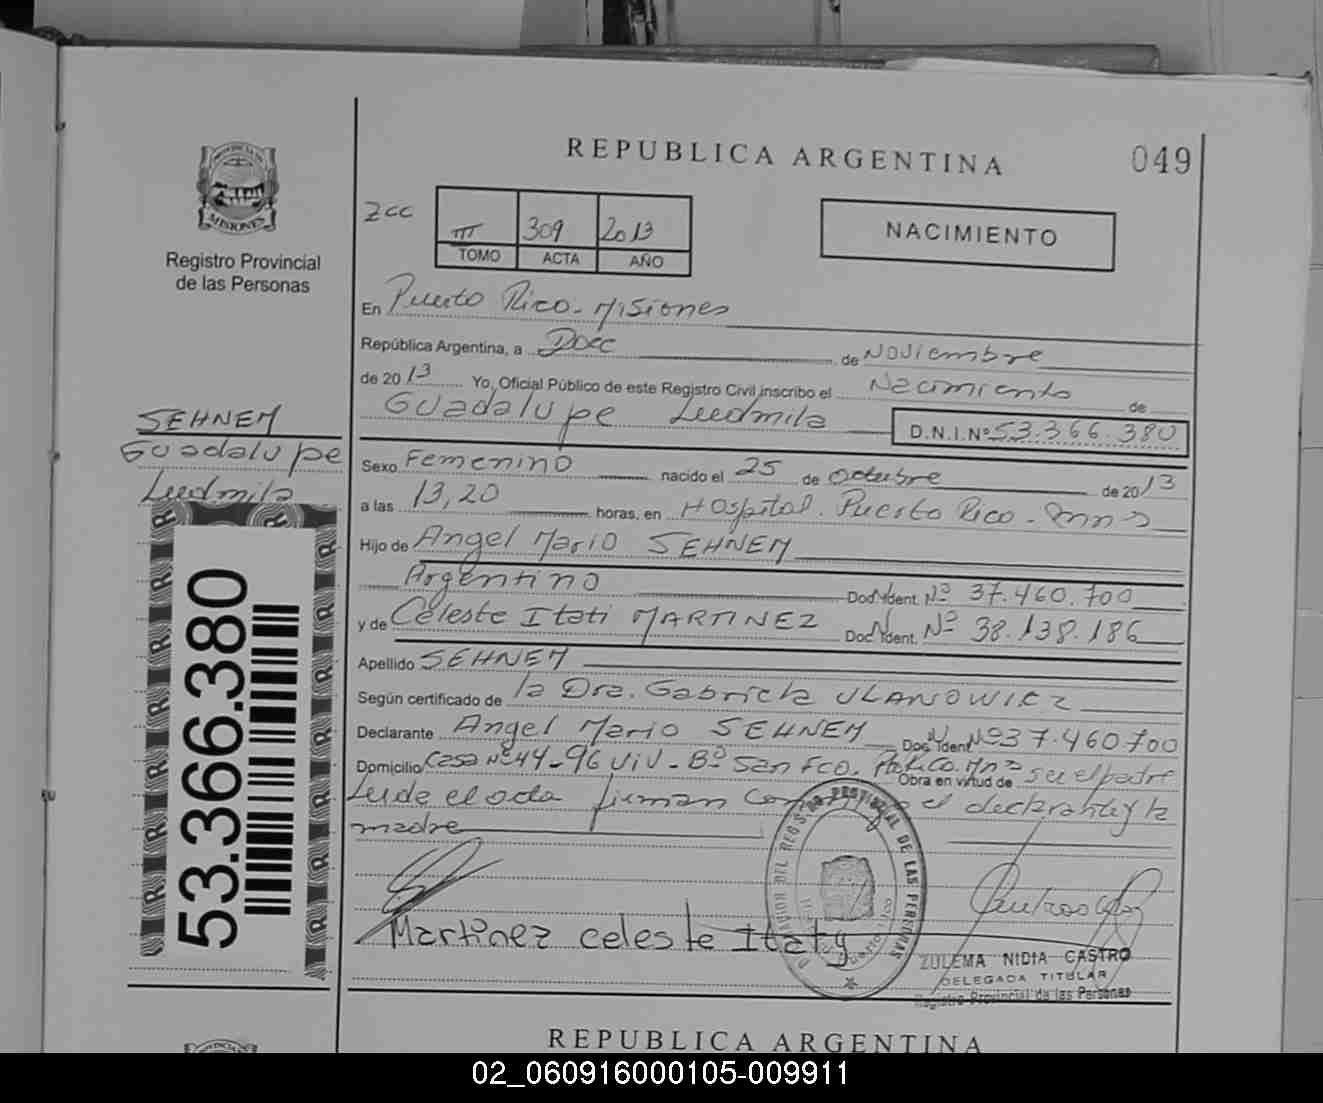 REPUBLICA ARGENTINA
049
PROVINCIA DE
MISIONES
Registro Provincial
de las Personas
Zcc
III 309 2013
TOMO ACTA AÑO
NACIMIENTO
En Puerto Rico - Misiones
República Argentina, a Doce de Noviembre
de 2013 Yo, Oficial Público de este Registro Civil inscribo el Nacimiento de
Guadalupe Ludmila D.N.I.Nº 53.366.380
Sexo Femenino nacido el 25 de Octubre de 2013
a las 13,20 horas, en Hospital. Puerto Rico - Mnes
Hijo de Angel Mario SEHNEM
Argentino Doc. Ident. Nº 37.460.700
y de Celeste Itati MARTINEZ Doc. Ident. Nº 38.138.186
Apellido SEHNEM
Según certificado de la Dra. Gabriela ULANOWIEZ
Declarante Angel Mario SEHNEM Doc. Ident. Nº 37.460700
Domicilio Casa Nº 44-96 viv - Bº San Fco. Pto Rico. Mnes Obra en virtud de ser el padre
Leida el acta firman conmigo el declarante y la
madre
SEHNEM
Guadalupe
Ludmila
53.366.380
Martinez celeste Itaty
DIRECCION DEL REGISTRO PROVINCIAL DE LAS PERSONAS
ZULEMA NIDIA CASTRO
DELEGADA TITULAR
Registro Provincial de las Personas
REPUBLICA ARGENTINA
02_060916000105-009911